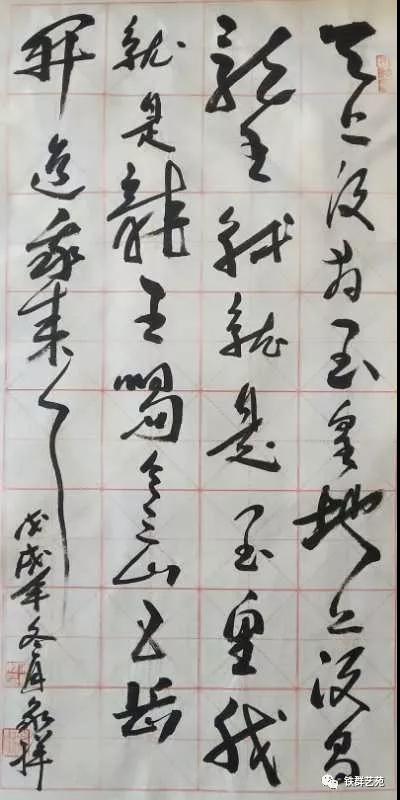 天上没有玉皇地上没有
龍王我就是玉皇我
就是龍王喝令三山五岳
開道我来了
戊戌年冬月
铁群艺苑